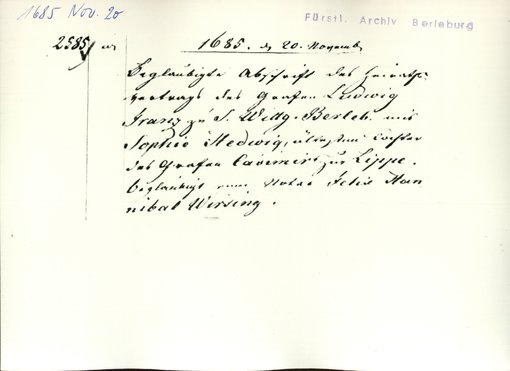 1685 Nov. 20
Fürstl. Archiv Berleburg
2585
1685. 20. Novemb.
Beglaubigte Abschrift des Heiraths-
vertrags des Grafen Ludwig
Franz zu S. Wittg. Berleb. mit
Sophie Hedwig, ältesten Tochter
des Grafen Casimir zur Lippe.
Beglaubigt Notar Felix Han
nibal Wirsing.